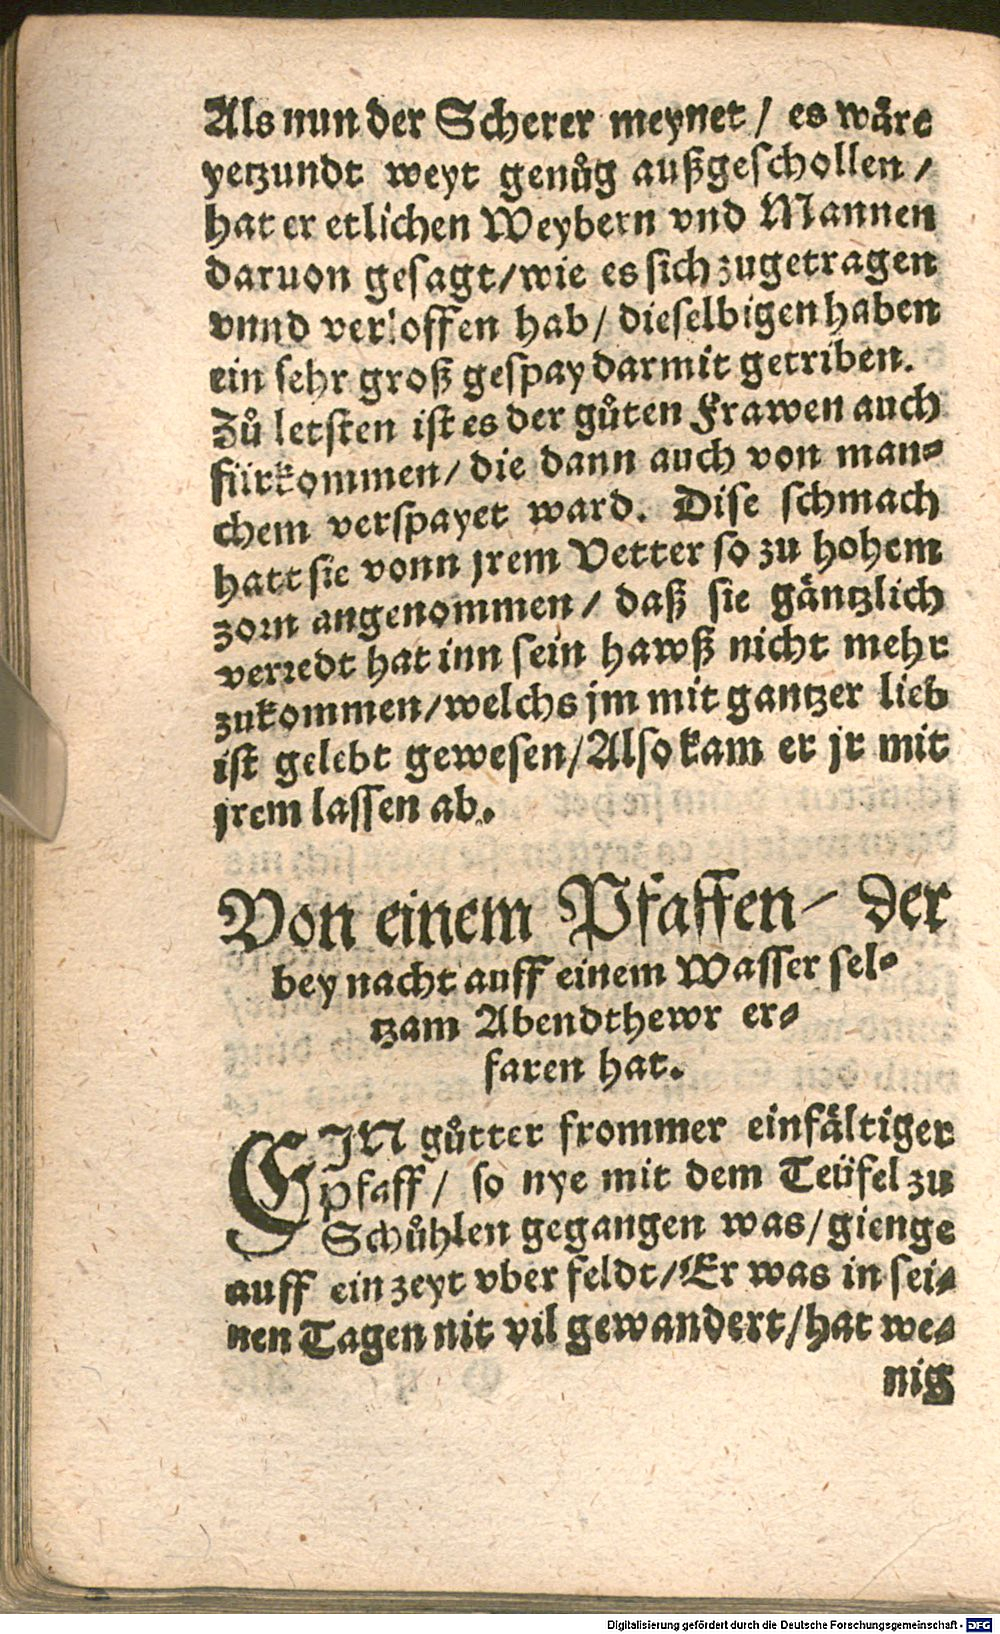 Als nun der Scherer meynet / es wåre
yetzundt weyt genůg außgeschollen /
hat er etlichen Weybern vnd Mannen
daruon gesagt/wie es sich zugetragen
vnnd verloffen hab/ dieselbigen haben
ein sehr groß gespay darmit getriben.
Zů letsten ist es der gůten Frawen auch
fürkommen/ die dann auch von man⸗
chem verspayet ward. Dise schmach
hatt sie vonn jrem Vetter so zu hohem
zorn angenommen/ daß sie gäntzlich
verredt hat inn sein hawß nicht mehr
zukommen/welchs jm mit gantzer lieb
ist gelebt gewesen/Also kam er jr mit
jrem lassen ab.
Von einem Pfaffen/ der
bey nacht auff einem Wasser sel⸗
tzam Abendthewr er⸗
faren hat.
EIN gůtter frommer einfältiger
Pfaff/ so nye mit dem Teüfel zu
Schůhlen gegangen was/gienge
auff ein zeyt vber feldt/Er was in sei⸗
nen Tagen nit vil gewandert/hat we⸗
nig
Digitalisierung gefördert durch die Deutsche Forschungsgemeinschaft - DFG